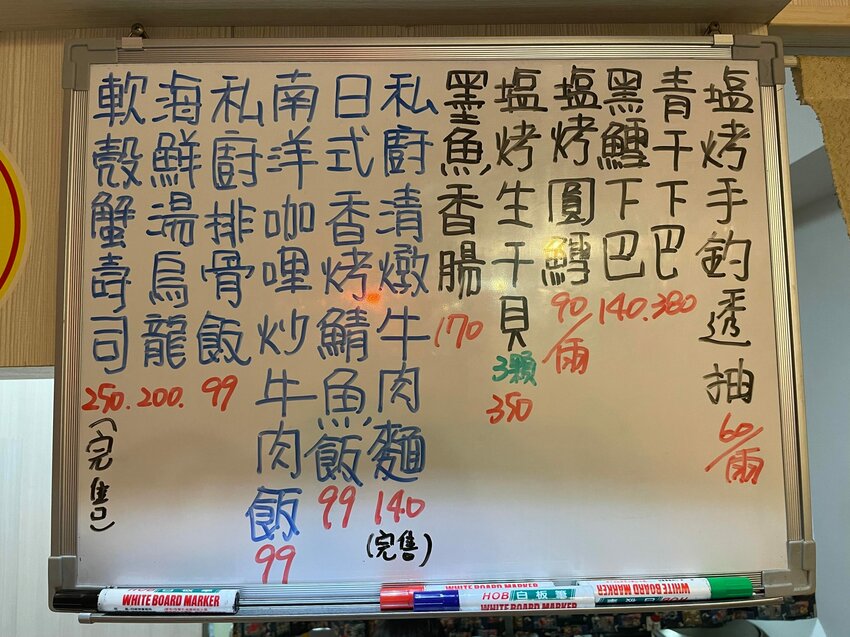 塩烤手釣透抽 60/兩
青干下巴 380
黑鱈下巴 140.
塩烤圓鱈 90/兩
塩烤生干貝 3顆 350
墨魚香腸 170
私廚清燉牛肉麵 140 (完售)
日式香烤鯖魚飯 99
南洋咖哩炒牛肉飯 99
私廚排骨飯 99
海鮮湯烏龍 200.
軟殼蟹壽司 250. (完售)
WHITE BOARD MARKER
WHITE BOARD MARKER
HOB 白板筆
WHITE BOARD MARKER